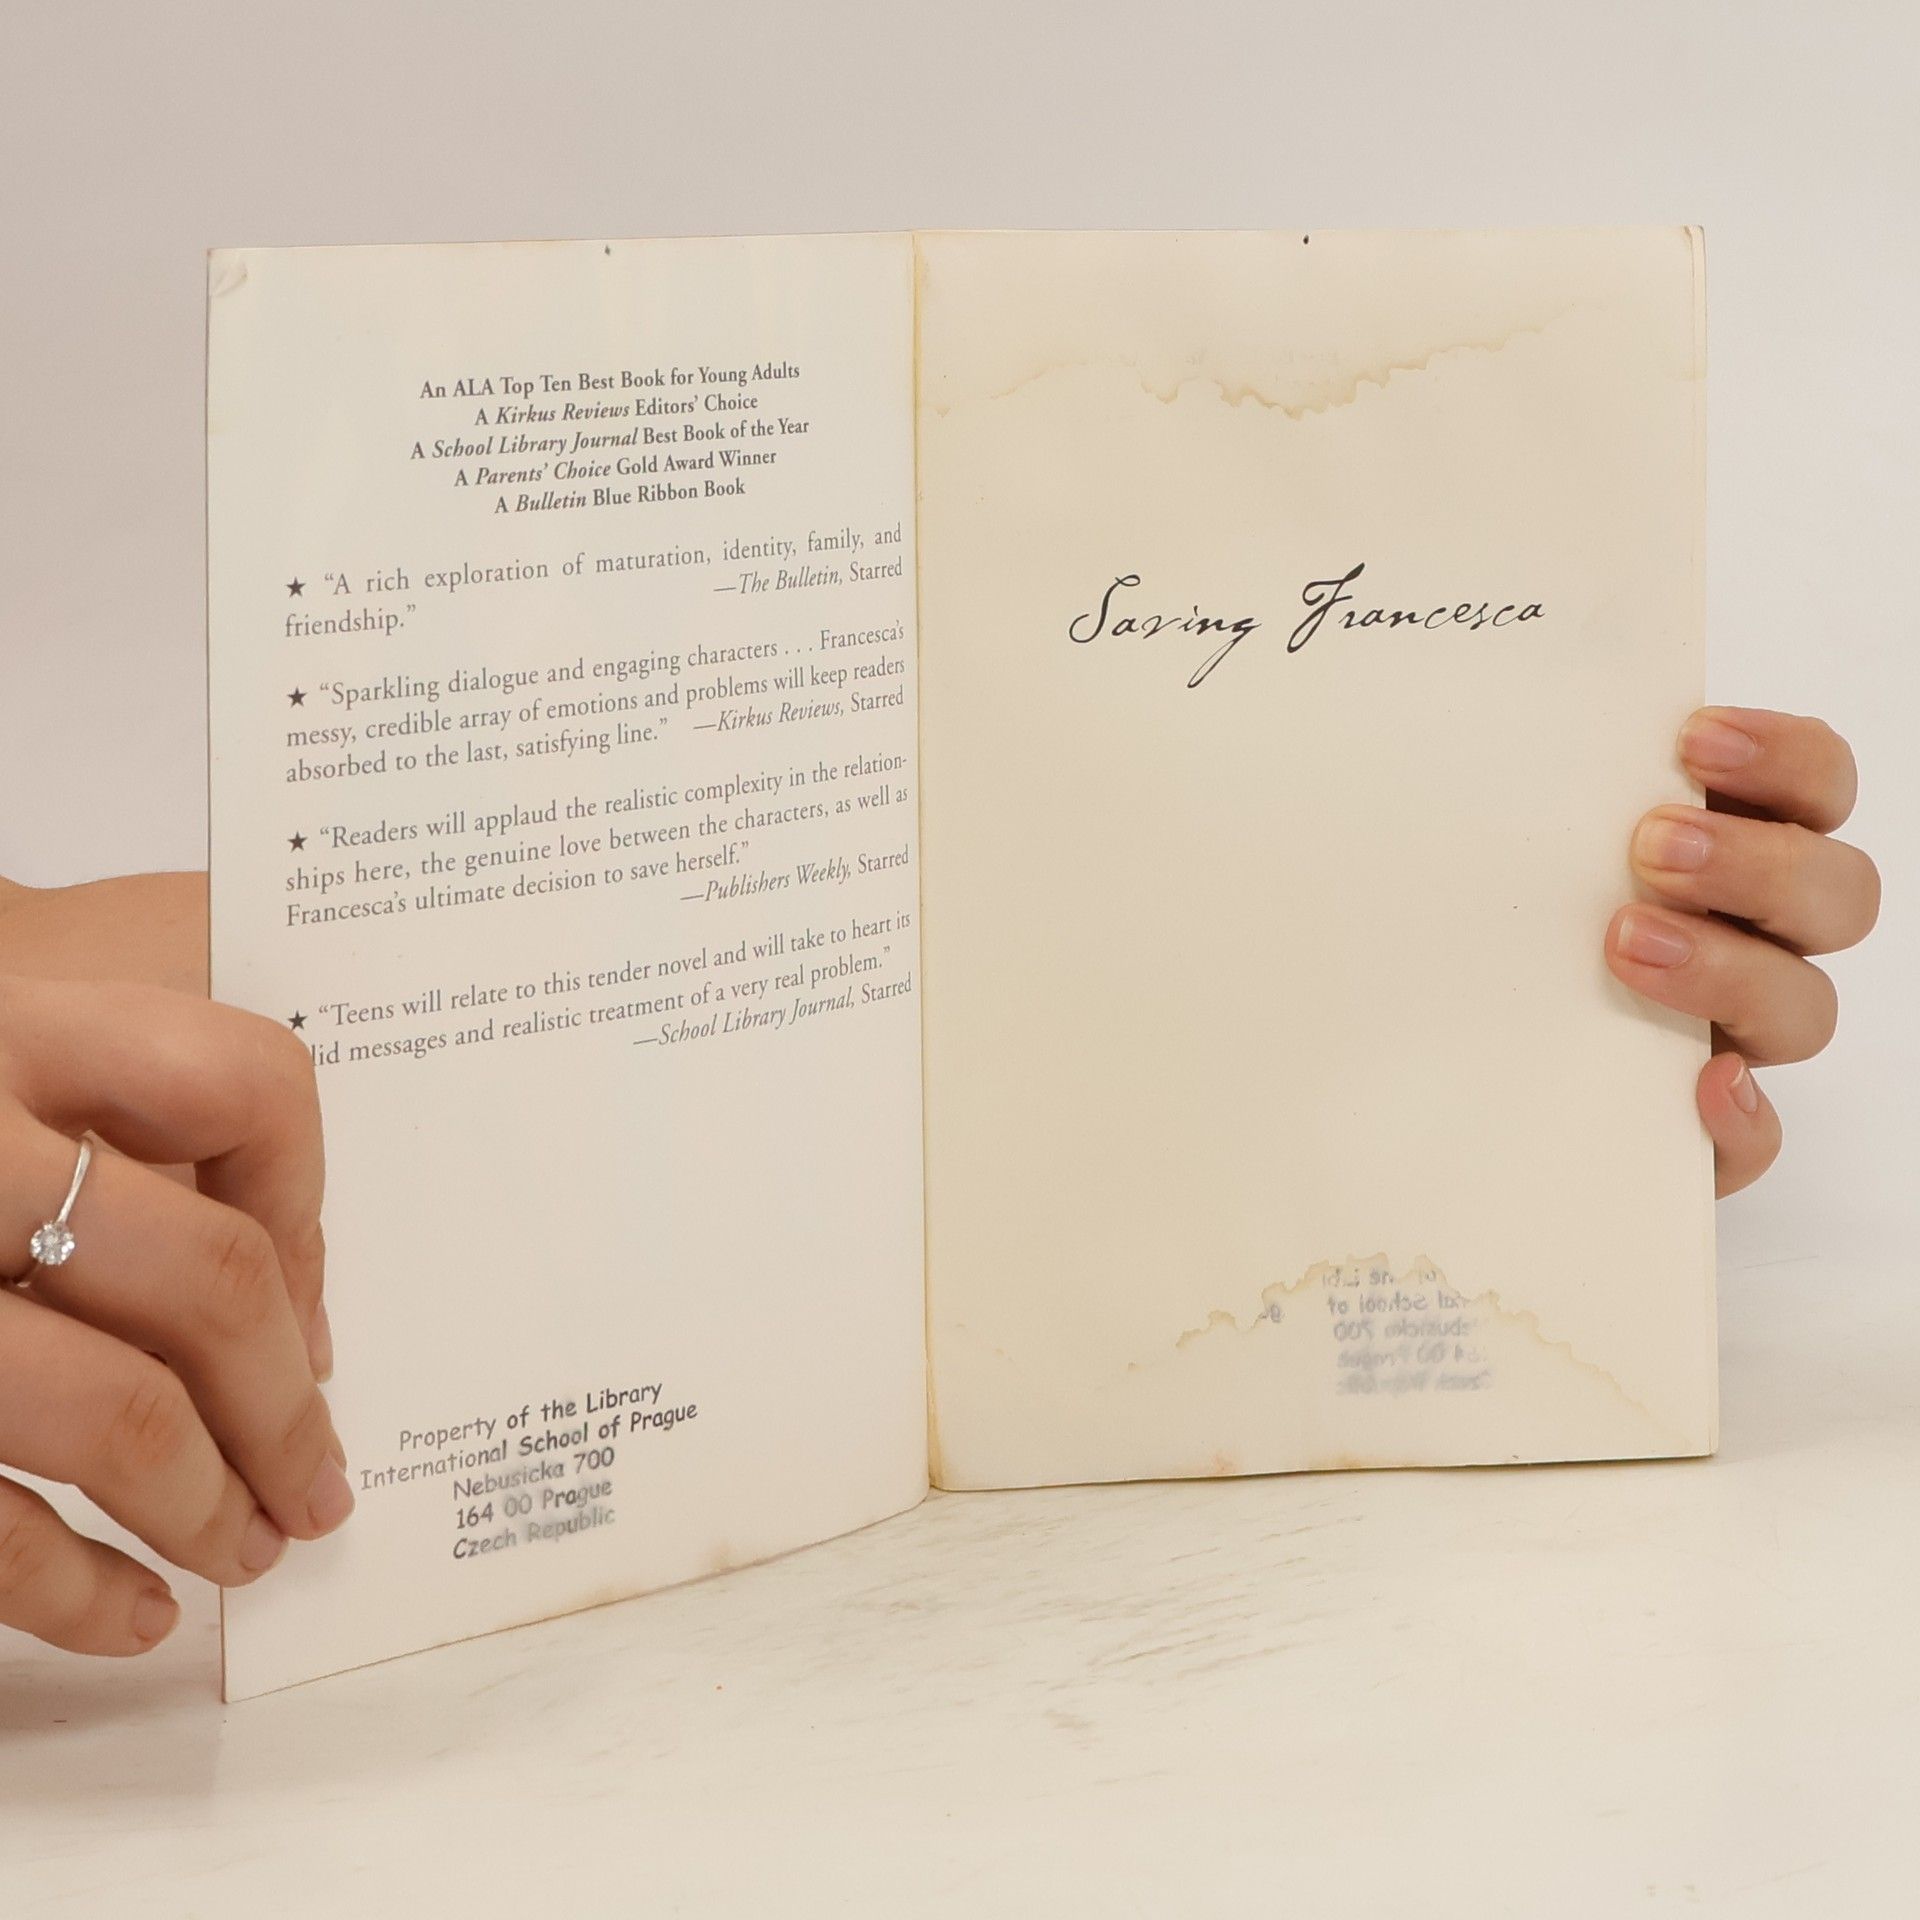 An ALA Top Ten Best Book for Young Adults
A Kirkus Reviews Editors' Choice
A School Library Journal Best Book of the Year
A Parents' Choice Gold Award Winner
A Bulletin Blue Ribbon Book
★ “A rich exploration of maturation, identity, family, and
friendship.” —The Bulletin, Starred
★ “Sparkling dialogue and engaging characters . . . Francesca’s
messy, credible array of emotions and problems will keep readers
absorbed to the last, satisfying line.” —Kirkus Reviews, Starred
★ “Readers will applaud the realistic complexity in the relation-
ships here, the genuine love between the characters, as well as
Francesca’s ultimate decision to save herself.”
—Publishers Weekly, Starred
★ “Teens will relate to this tender novel and will take to heart its
lid messages and realistic treatment of a very real problem.”
—School Library Journal, Starred
Property of the Library
International School of Prague
Nebusicka 700
164 00 Prague
Czech Republic
Saving Francesca